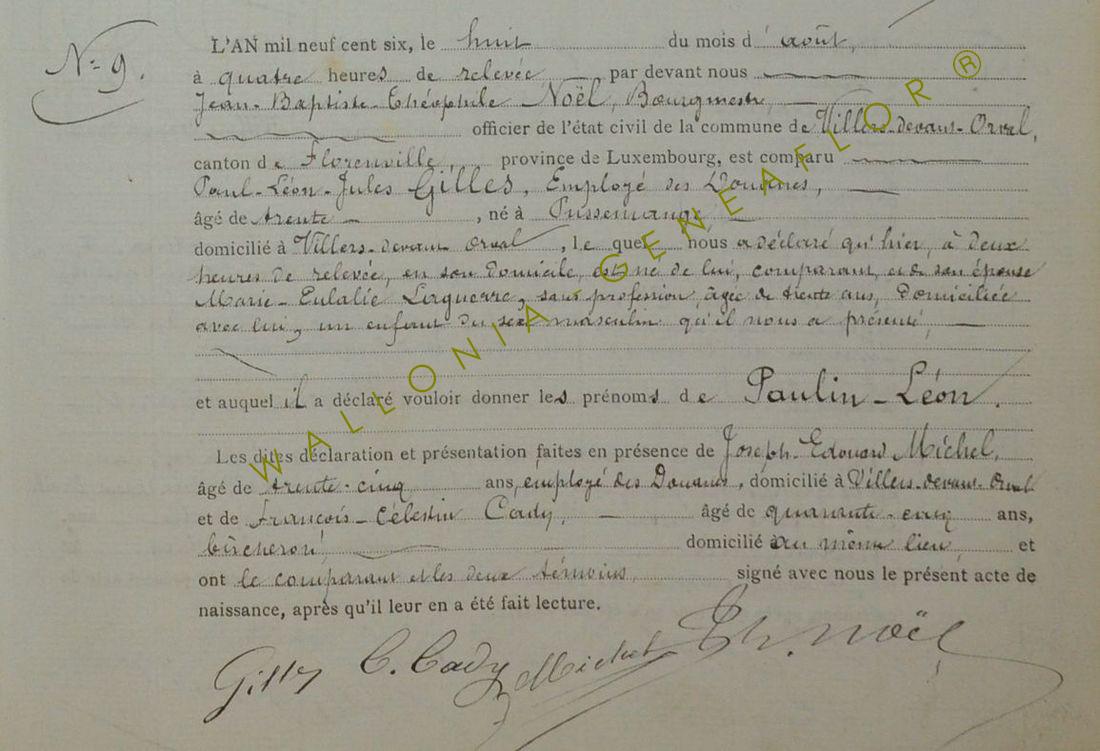 N° 9.
L'AN mil neuf cent six, le huit du mois d'août,
à quatre heures de relevée par devant nous
Jean-Baptiste-Théophile Noël, Bourgmestre,
officier de l'état civil de la commune de Villers-devant-Orval,
canton de Florenville, province de Luxembourg, est comparu
Paul-Léon-Jules Gilles, Employé des Douanes,
âgé de trente, né à Pussemange
domicilié à Villers-devant Orval, le quel nous a déclaré qu'hier, à deux
heures de relevée, en son domicile, est né de lui, comparant, et de son épouse
Marie-Eulalie Laguerre, sans profession, âgée de trente ans, domiciliée
avec lui, un enfant du sexe masculin qu'il nous a présenté,
et auquel il a déclaré vouloir donner les prénoms de Paulin-Léon.
Les dites déclaration et présentation faites en présence de Joseph-Edouard Michel,
âgé de trente-cinq ans, employé des Douanes, domicilié à Villers-devant-Orval
et de François-Célestin Cady, âgé de quarante-cinq ans,
bûcheron, domicilié au même lieu, et
ont le comparant et les deux témoins, signé avec nous le présent acte de
naissance, après qu'il leur en a été fait lecture.
Gilles C. Cady Michel Th. Noël
WALLONIA-GENEAFLOR ®